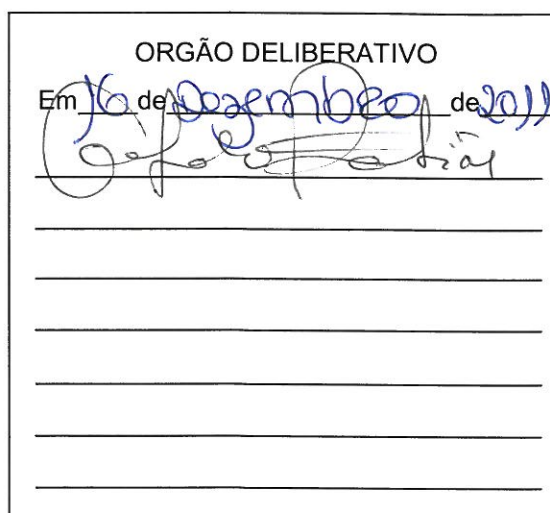 ORGÃO DELIBERATIVO
Em 16 de Dezembro de 2011